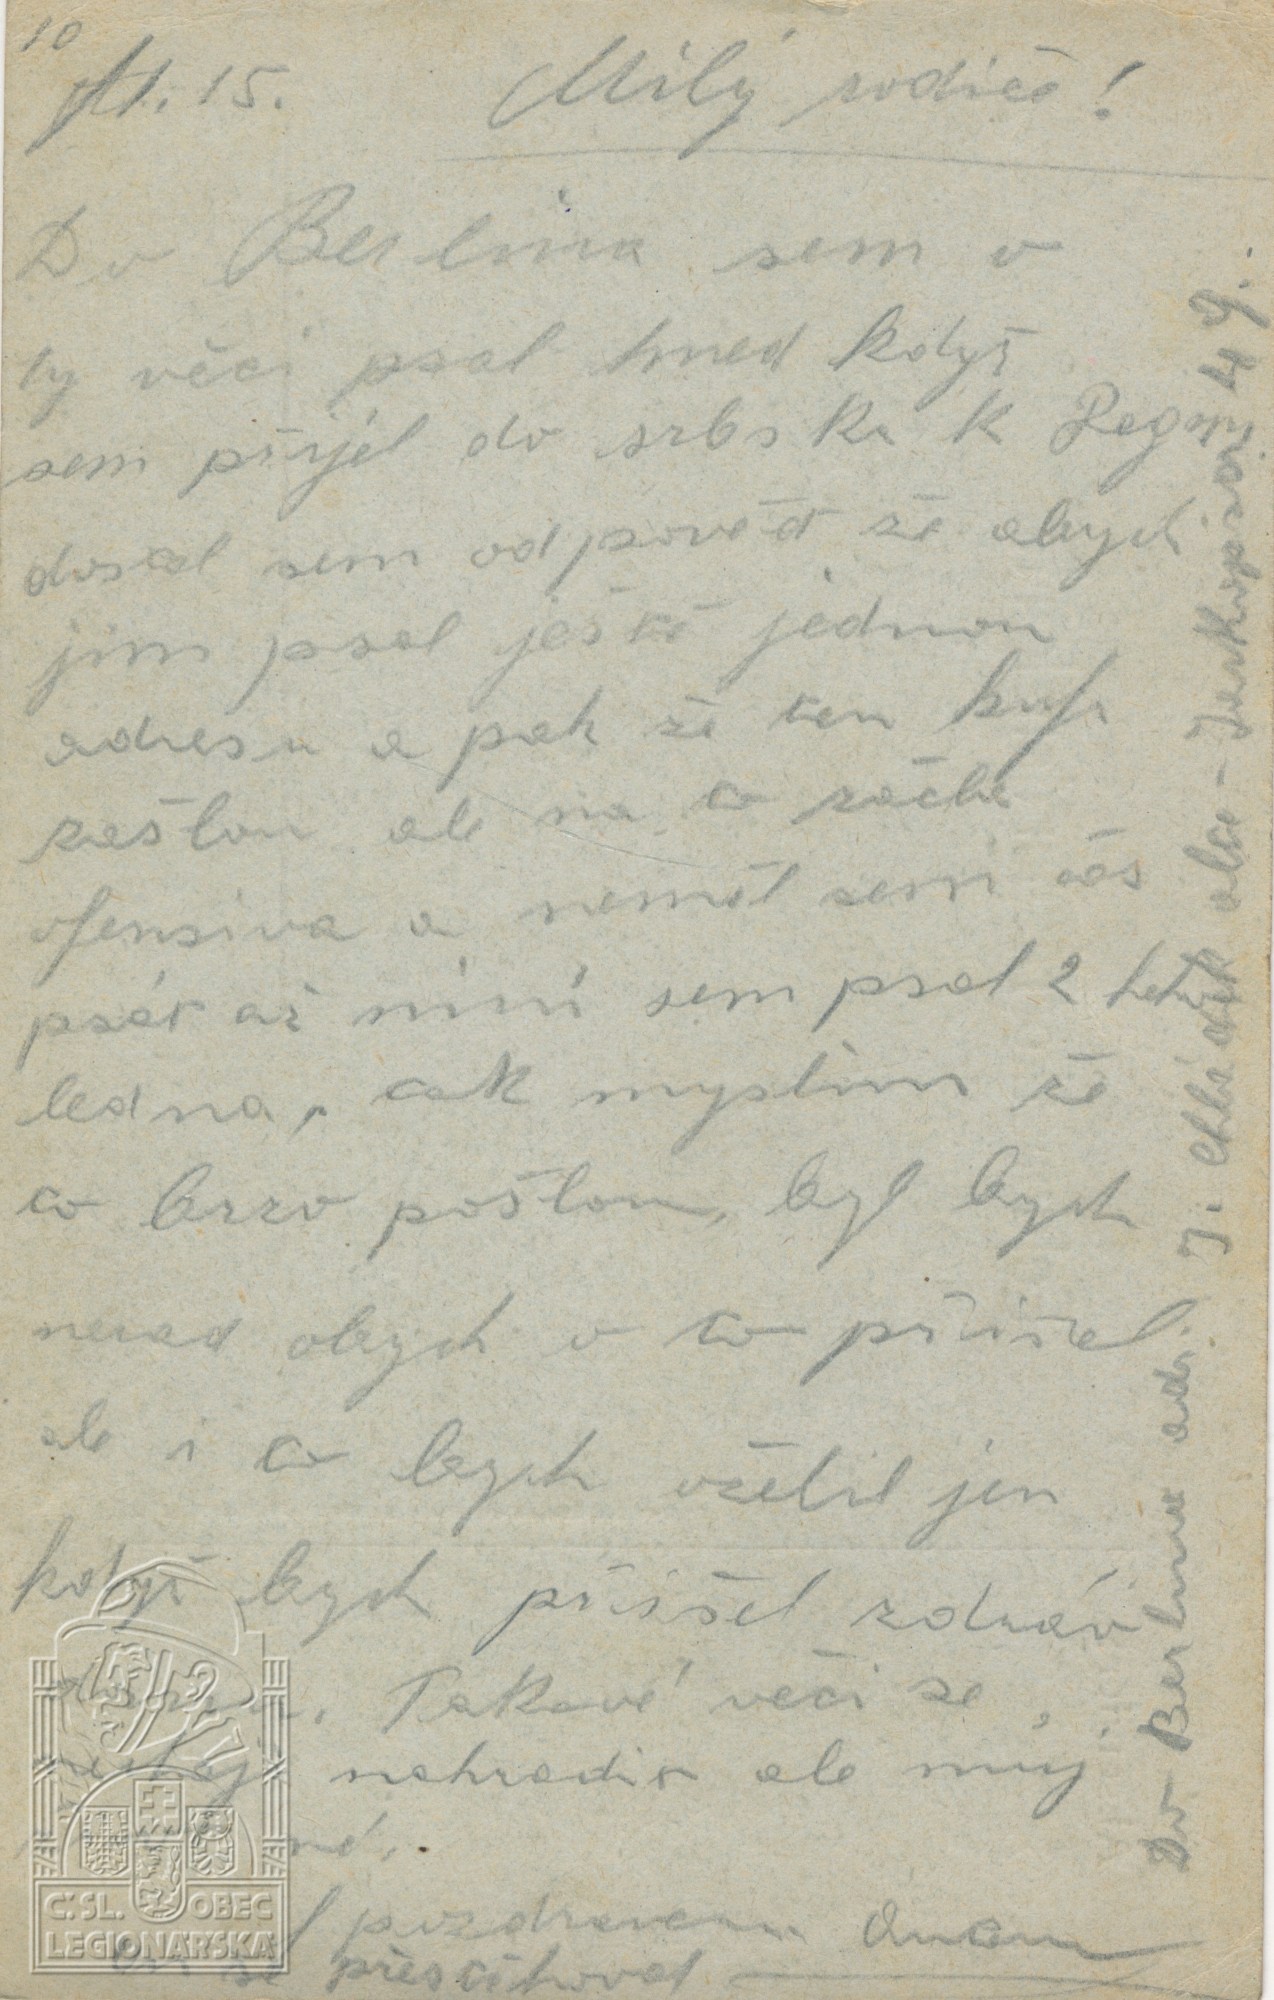 10
11. 15.
Milý rodiče!
Do Berlina sem o
ty věci psal hned když
sem přijel do srbska k Regmj
dostal sem odpověd že abych
jim psal ještě jednou
adresu a pak že ten kufr
zašlou ale na to začla
ofensiva a neměl sem čas
psát až níní sem psal 2 het
ledna, tak myslim že
to brzo pošlou, byl bych
nerad abych o to přišel
ale i to bych oželil jen
když bych přišel zdráv
Takové věci se
nahradit ale můj
né.
pozdravem Anton
se přestěhoval
Do Berlina adr. J. Chládek alce - 49.
Č.SL. OBEC
LEGIONÁŘSKÁ